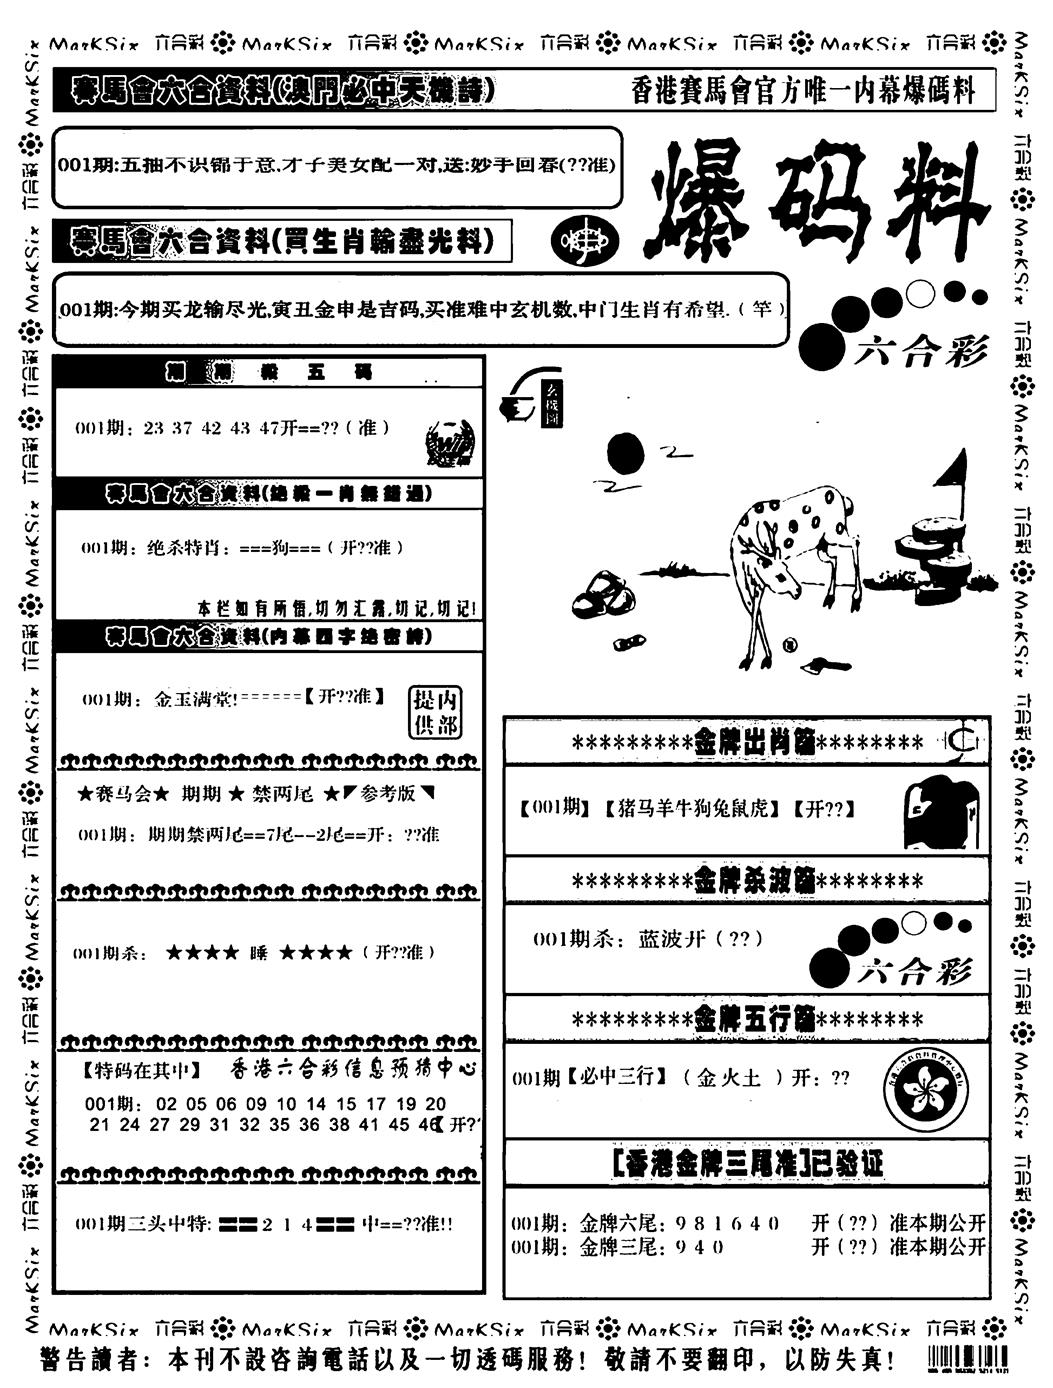 MarKSix 六合彩 MarKSix 六合彩 MarKSix 六合彩 MarKSix 六合彩 MarKSix 六合彩
賽馬會六合資料(澳門必中天機詩)
香港賽馬會官方唯一内幕爆碼料
001期:五抽不识锦于意,才子美女配一对,送:妙手回春(??准)
爆码料
賽馬會六合資料(買生肖輸盡光料)
001期:今期买龙输尽光,寅丑金申是吉码,买准难中玄机数,中门生肖有希望.(竿)
六合彩
期期殺五碼
001期: 23 37 42 43 47开==??(准)
玄機圖
賽馬會六合資料(绝殺一肖無錯過)
001期: 绝杀特肖: ===狗===(开??准)
本栏如有所悟,切勿汇露,切记,切记!
賽馬會六合資料(内幕四字绝密詩)
001期: 金玉满堂!======【开??准】
提内
供部
★赛马会★ 期期 ★ 禁两尾 ★◤参考版◥
001期: 期期禁两尾==7尾--2尾==开: ??准
001期杀: ★★★★ 睡 ★★★★(开??准)
【特码在其中】 香港六合彩信息预猜中心
001期: 02 05 06 09 10 14 15 17 19 20
21 24 27 29 31 32 35 36 38 41 45 46【开?
001期三头中特: 〓〓2 1 4〓〓 中==??准!!
*********金牌出肖篇********
【001期】【猪马羊牛狗兔鼠虎】【开??】
*********金牌杀波篇********
001期杀: 蓝波开(??)
六合彩
*********金牌五行篇********
001期【必中三行】(金火土)开: ??
[香港金牌三尾准]已验证
001期: 金牌六尾: 9 8 1 6 4 0 开(??)准本期公开
001期: 金牌三尾: 9 4 0 开(??)准本期公开
MarKSix 六合彩 MarKSix 六合彩 MarKSix 六合彩 MarKSix 六合彩 MarKSix 六合彩
警告讀者: 本刊不設咨詢電話以及一切透碼服務! 敬請不要翻印, 以防失真!